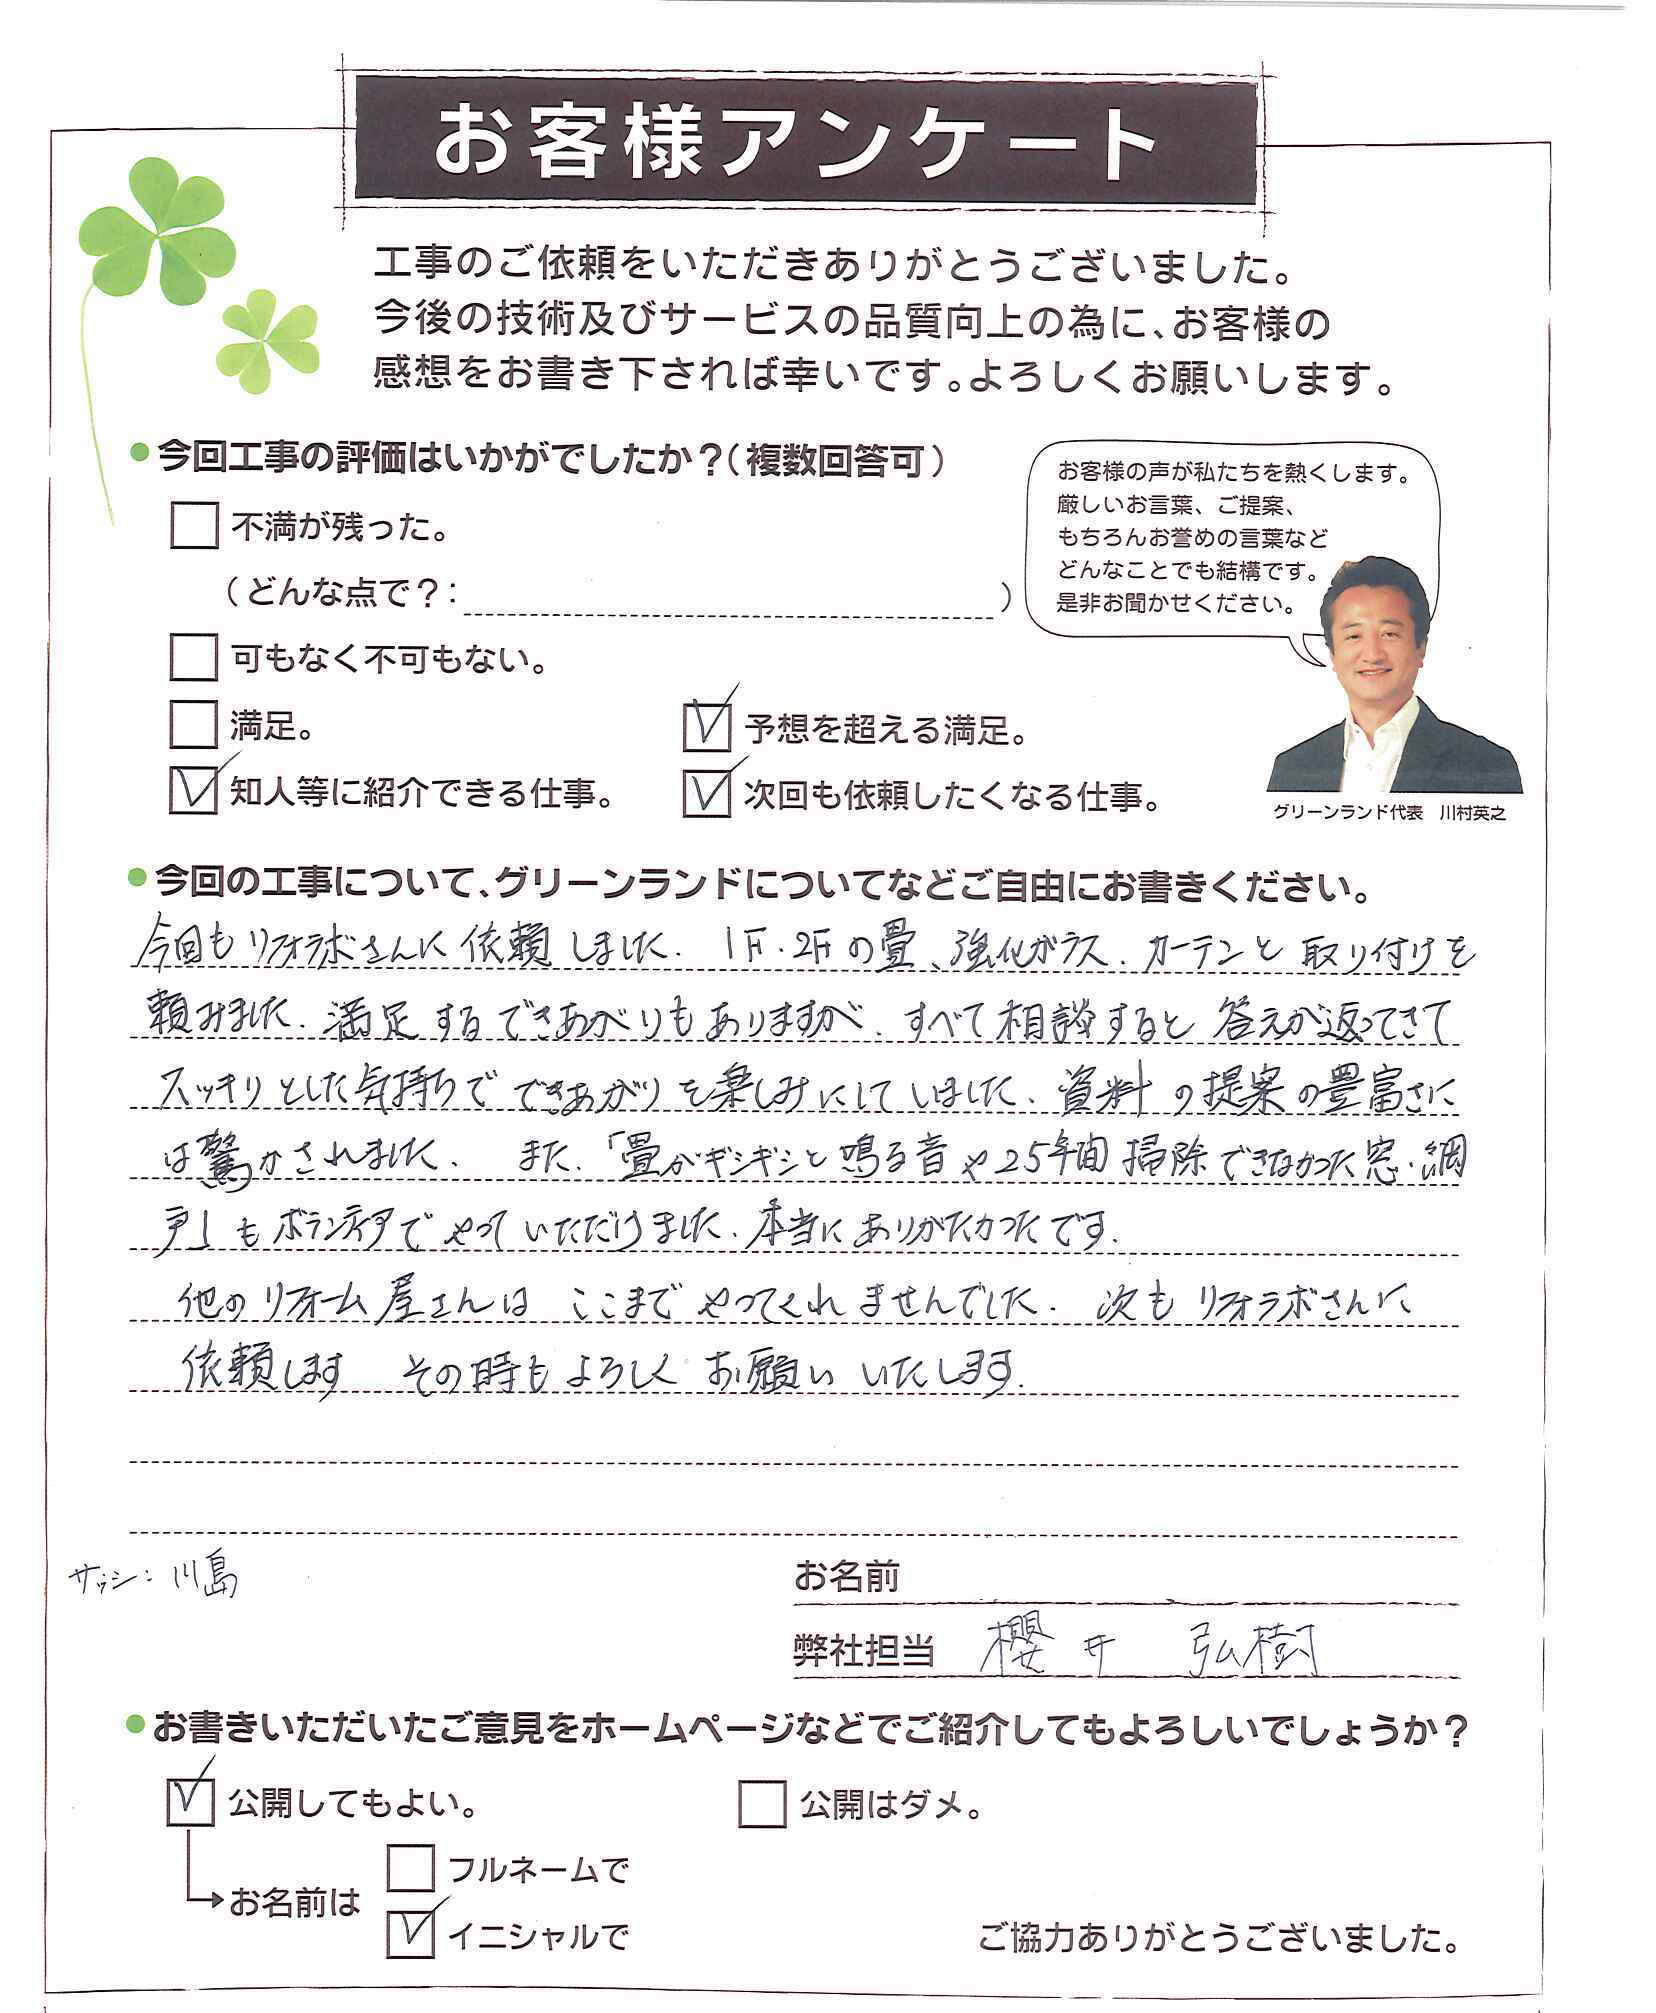 お客様アンケート
工事のご依頼をいただきありがとうございました。
今後の技術及びサービスの品質向上の為に、お客様の
感想をお書き下されば幸いです。よろしくお願いします。
●今回工事の評価はいかがでしたか？（複数回答可）
不満が残った。
（どんな点で？：　　　）
可もなく不可もない。
満足。
予想を超える満足。
知人等に紹介できる仕事。
次回も依頼したくなる仕事。
お客様の声が私たちを熱くします。
厳しいお言葉、ご提案、
もちろんお誉めの言葉など
どんなことでも結構です。
是非お聞かせください。
グリーンランド代表　川村英之
●今回の工事について、グリーンランドについてなどご自由にお書きください。
今回もリフォラボさんに依頼しました。1F・2Fの畳、強化ガラス、カーテンと取り付けを
頼みました。満足するできあがりもありますが、すべて相談すると答えが返ってきて
スッキリとした気持ちでできあがりを楽しみにしていました。資料の提案の豊富さに
は驚かされました。また、「畳がギシギシと鳴る音や25年間掃除できなかった窓・網
戸」もボランティアでやっていただけました。本当にありがたかったです。
他のリフォーム屋さんはここまでやってくれませんでした。次もリフォラボさんに
依頼します　その時もよろしくお願いいたします。
サッシ：川島
お名前
弊社担当　櫻井　弘樹
●お書きいただいたご意見をホームページなどでご紹介してもよろしいでしょうか？
公開してもよい。
公開はダメ。
お名前は
フルネームで
イニシャルで
ご協力ありがとうございました。